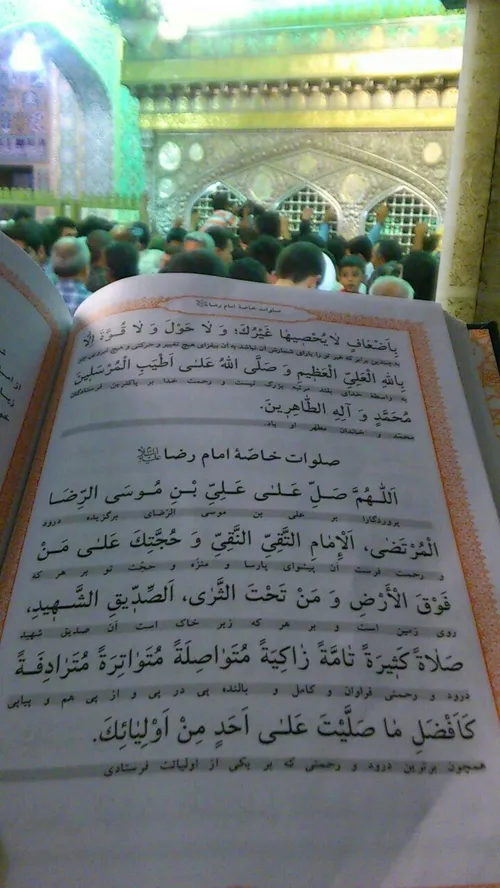 صلوات خاصهٔ امام رضا
بِاَضْعَافٍ لَا يُحْصِيهَا غَيْرُكَ؛ وَ لَا حَوْلَ وَ لَا قُوَّةَ اِلَّا
بِاللّٰهِ الْعَلِيِّ الْعَظِيمِ وَ صَلَّى اللّٰهُ عَلٰى اَطْيَبِ الْمُرْسَلِينَ
به واسطهٔ خدای بلند مرتبهٔ بزرگ نیست و رحمت خدا بر پاکترین فرستادگان
مُحَمَّدٍ وَ آلِهِ الطَّاهِرِينَ.
محمد و خاندان مطهر او باد.
صلوات خاصّهٔ امام رضا علیه‌السلام
اَللّٰهُمَّ صَلِّ عَلٰى عَلِيِّ بْنِ مُوسَى الرِّضَا
پروردگارا بر علی بن موسی الرضای برگزیده درود
الْمُرْتَضٰى، اَلْاِمَامِ التَّقِيِّ النَّقِيِّ وَ حُجَّتِكَ عَلٰى مَنْ
و رحمت فرست آن پیشوای پارسا و منزّه و حجّت تو بر هر که
فَوْقَ الْاَرْضِ وَ مَنْ تَحْتَ الثَّرٰى، اَلصِّدِّيقِ الشَّهِيدِ،
روی زمین است و بر هر که زیر خاک است آن صدیق شهید
صَلَاةً كَثِيرَةً تَامَّةً زَاكِيَةً مُتَوَاصِلَةً مُتَوَاتِرَةً مُتَرَادِفَةً
درود و رحمتی فراوان و کامل و بالنده پی در پی و از پی هم و پیاپی
كَاَفْضَلِ مَا صَلَّيْتَ عَلٰى اَحَدٍ مِنْ اَوْلِيَائِكَ.
همچون برترین درود و رحمتی که بر یکی از اولیائت فرستادی